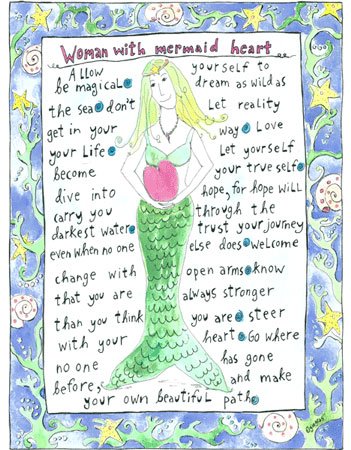 Woman with mermaid heart
Allow yourself to
be magical dream as wild as
the sea don't Let reality
get in your way Love
your Life Let yourself
become your true self
dive into hope, for hope will
carry you through the
darkest water trust your journey
even when no one else does welcome
change with open arms know
that you are always stronger
than you think you are steer
with your heart Go where
no one has gone
before, and make
your own beautiful path